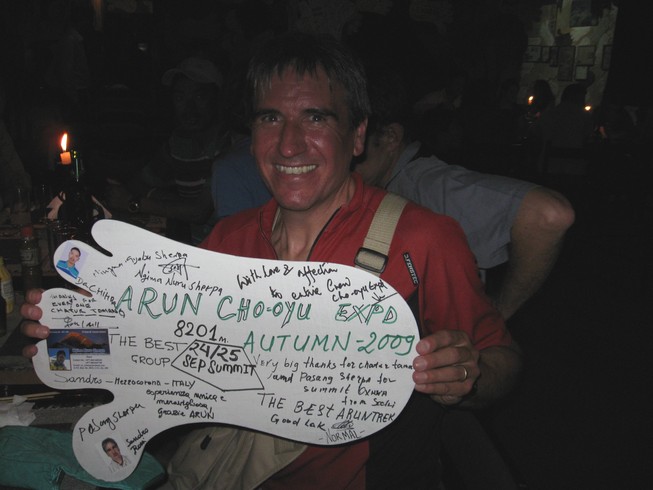 Nyunu Ayabu Sherpa
Ngimn Nuru Sherpa
DACHHIRI
With Love & Affection
to entire Crow
cho-oyu Expd
ARUN CHO-OYU EXPD
8201 m.
AUTUMN-2009
THE BEST
GROUP
24/25
SEP SUMMIT
Very big thanks for
and Pasang Sherpa for
summit
from Scott
THE BEST ARUNTREK
Good Luk
NORMAL
Sandro - Mezzocorona - ITALY
esperienza unica e
meravigliosa
grazie ARUN
PaSang Sherpa
Sandro